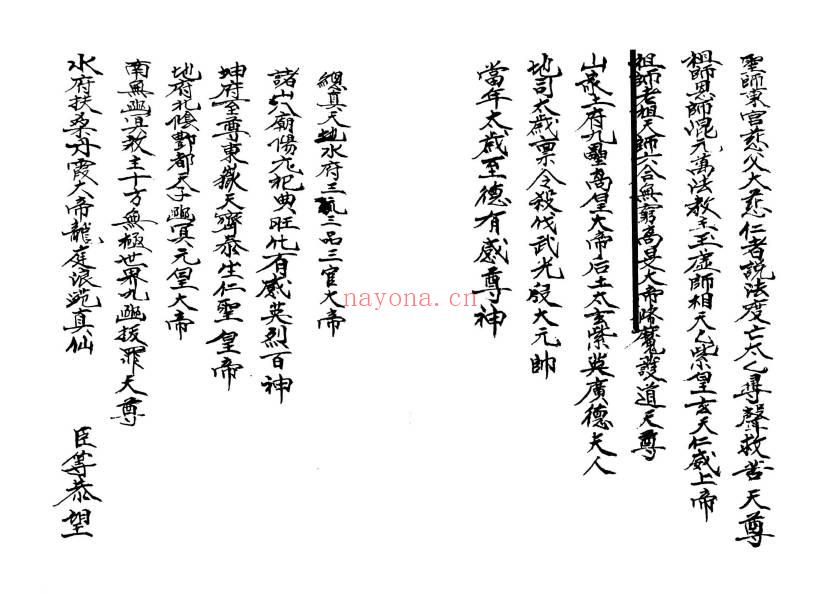 聖師東宮慈父大慈仁者說法度亡太乙尋聲救苦天尊
祖師恩師混元萬法教主玉虛師相天乙紫皇玄天仁威上帝
祖師老祖天師六合無窮高旻大帝降魔護道天尊
山泉土府九壘高皇大帝后土太玄紫英廣德夫人
地司太歲稟令殺伐武光殷大元帥
當年太歲至德有感尊神
總真天地水府三元三品三官大帝
諸山八廟陽元祀典旺化有感英烈百神
坤府至尊東嶽天齊泰生仁聖皇帝
地府北陰酆都天子幽冥元皇大帝
南無幽冥教主十方無極世界九幽拔罪天尊
水府扶桑丹霞大帝龍庭浪苑真仙
臣等恭望
nayona.cn